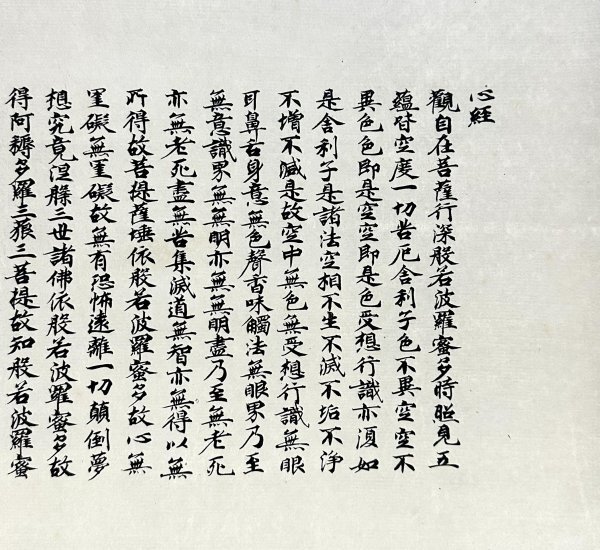 心経
觀自在菩薩行深般若波羅蜜多時照見五
蘊皆空度一切苦厄舍利子色不異空空不
異色色即是空空即是色受想行識亦復如
是舍利子是諸法空相不生不滅不垢不淨
不增不減是故空中無色無受想行識無眼
耳鼻舌身意無色聲香味觸法無眼界乃至
無意識界無無明亦無無明盡乃至無老死
亦無老死盡無苦集滅道無智亦無得以無
所得故菩提薩埵依般若波羅蜜多故心無
罣礙無罣礙故無有恐怖遠離一切顛倒夢
想究竟涅槃三世諸佛依般若波羅蜜多故
得阿耨多羅三藐三菩提故知般若波羅蜜